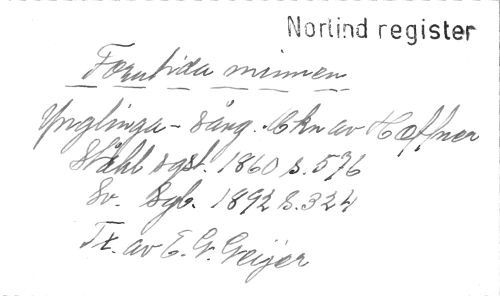 Norlind register
Forntida minnen
Ynglinga-sång. Ckn av Hæffner
Ståhl sgst. 1860 s. 576
Sv. Sgb. 1892 s. 324
Tx. av E. G. Geijer